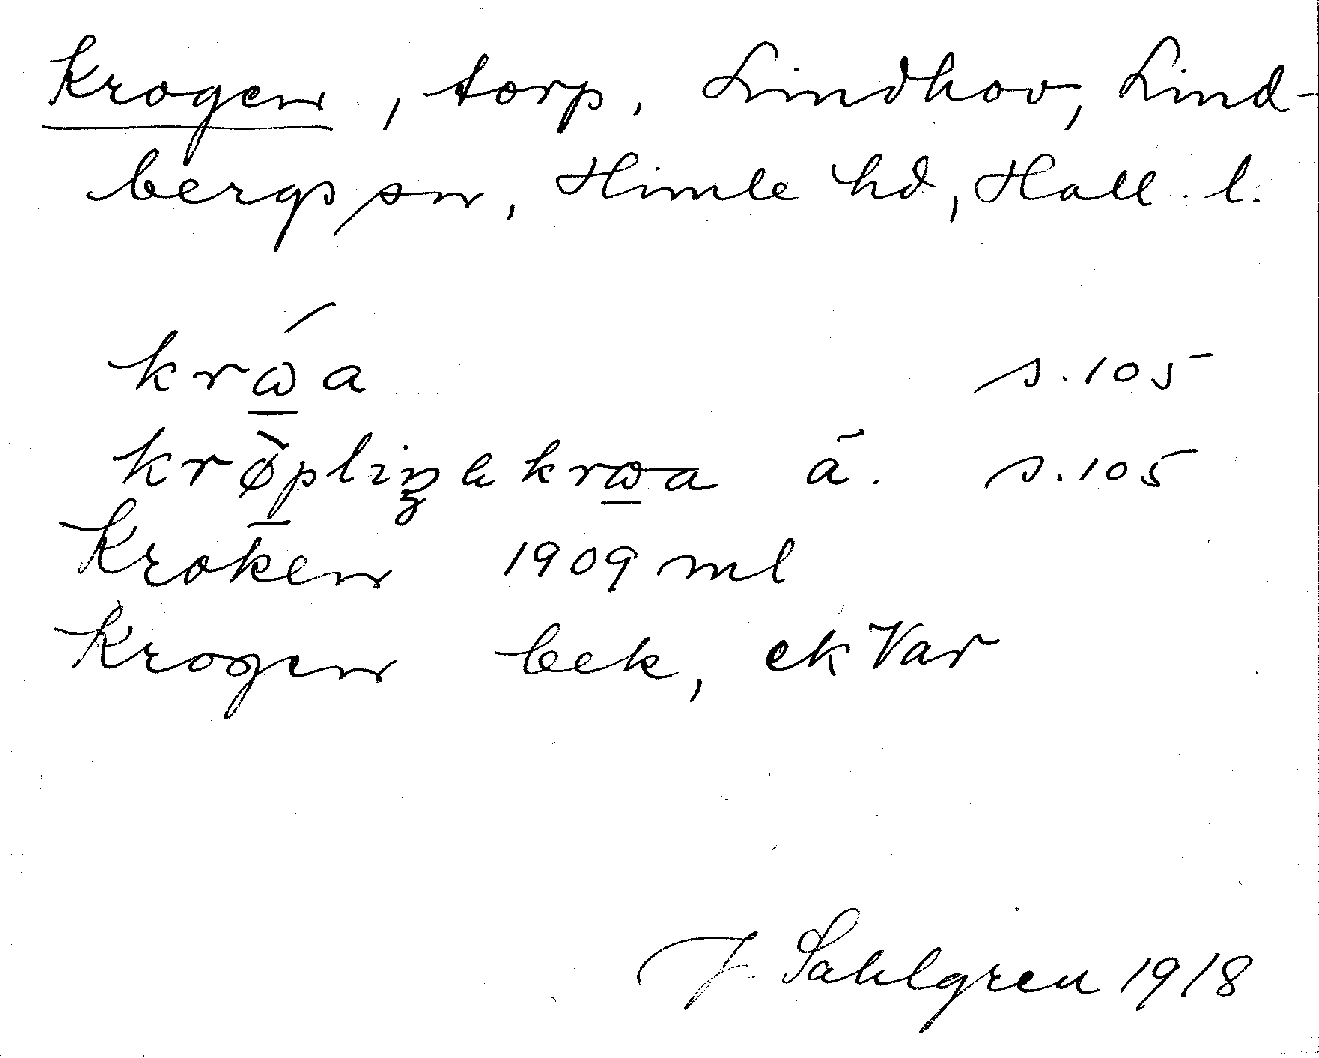 Krogen, torp, Lindhov, Lind-
bergs sn, Himle hd, Hall. l.
krώ̲a s.105
krø̲̀plinakrω̲a ā. s.105
Kroken 1909 ml
Krogen bek, ek Var
J. Sahlgren 1918